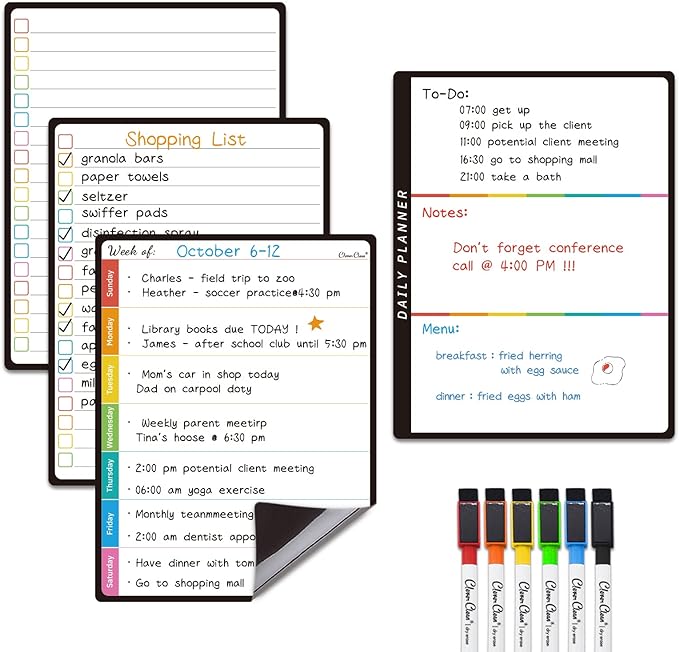 Shopping List
granola bars
paper towels
seltzer
swiffer pads
disinfection spray
gr
fa
pe
wa
fa
ap
eg
mil
pa
Week of: October 6-12
Clever Clean®
Sunday
· Charles - field trip to zoo
· Heather - soccer practice@4:30 pm
Monday
· Library books due TODAY !
· James - after school club until 5:30 pm
Tuesday
· Mom's car in shop today
Dad on carpool doty
Wednesday
· Weekly parent meetirp
Tina's hoose @ 6:30 pm
Thursday
· 2:00 pm potential client meeting
· 06:00 am yoga exercise
Friday
· Monthly teammeeting
· 2:00 am dentist appo
Saturday
· Have dinner with tom
· Go to shopping mall
DAILY PLANNER
To-Do:
07:00 get up
09:00 pick up the client
11:00 potential client meeting
16:30 go to shopping mall
21:00 take a bath
Notes:
Don't forget conference
call @ 4:00 PM !!!
Menu:
breakfast : fried herring
with egg sauce
dinner : fried eggs with ham
Clever Clean® | dry erase
Clever Clean® | dry erase
Clever Clean® | dry erase
Clever Clean® | dry erase
Clever Clean® | dry erase
Clever Clean® | dry erase